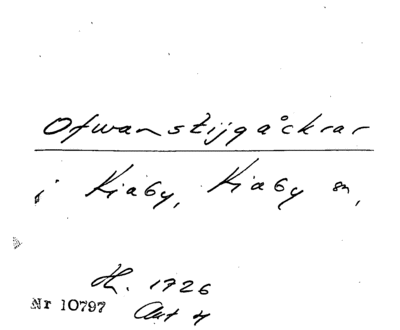 Ofwanstijgåckrar
i Kiaby, Kiaby sn,
Hh. 1726
Nr 10797 Akt 4